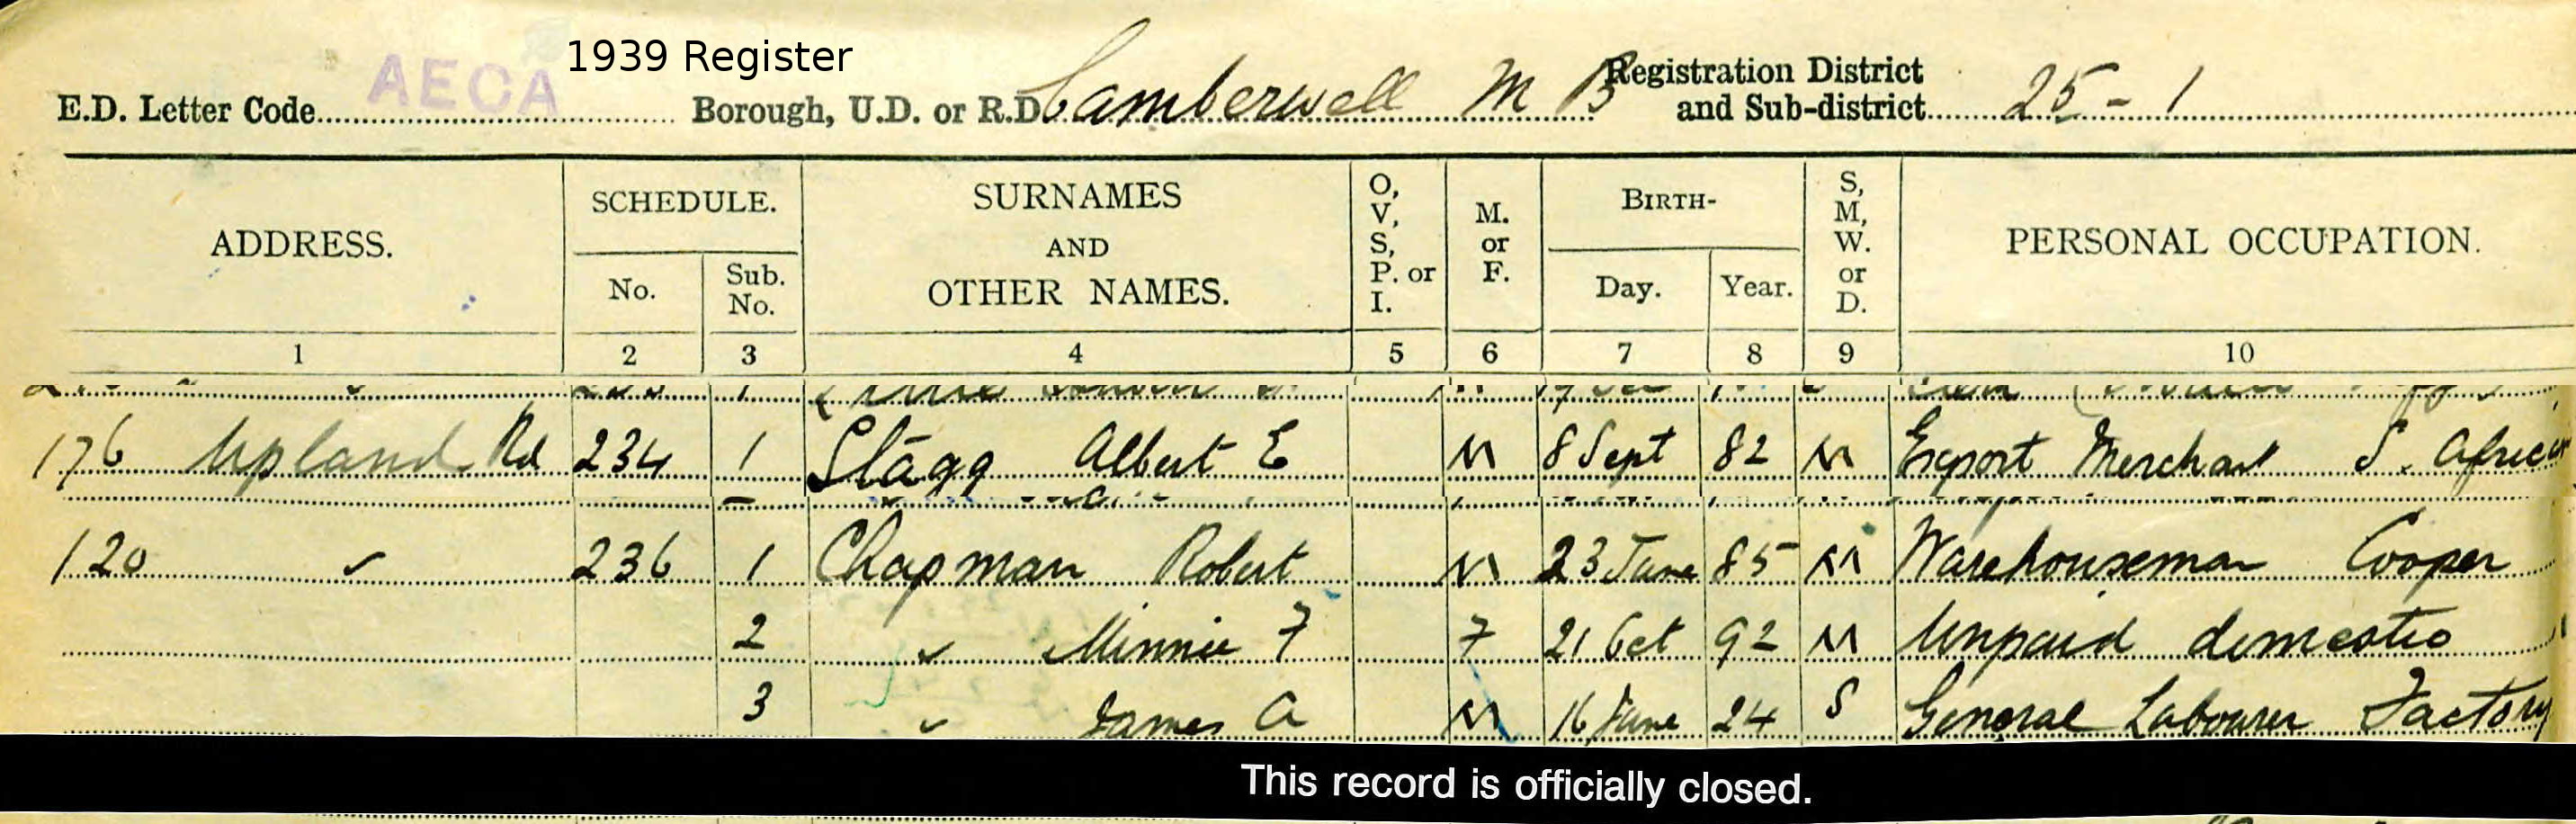 1939 Register
AECA
E.D. Letter Code Borough, U.D. or R.D. Camberwell M B Registration District and Sub-district 25-1
ADDRESS. SCHEDULE. No. Sub. No. SURNAMES AND OTHER NAMES. O, V, S, P. or I. M. or F. BIRTH- Day. Year. S, M, W. or D. PERSONAL OCCUPATION.
1 2 3 4 5 6 7 8 9 10
176 Upland Rd 234 1 Stagg Albert E M 8 Sept 82 M Export Merchant S. Africa
120 " 236 1 Chapman Robert M 23 June 85 M Warehouseman Cooper
2 " Minnie F F 21 Oct 92 M Unpaid domestic
3 " James A M 16 June 24 S General Labourer Factory
This record is officially closed.